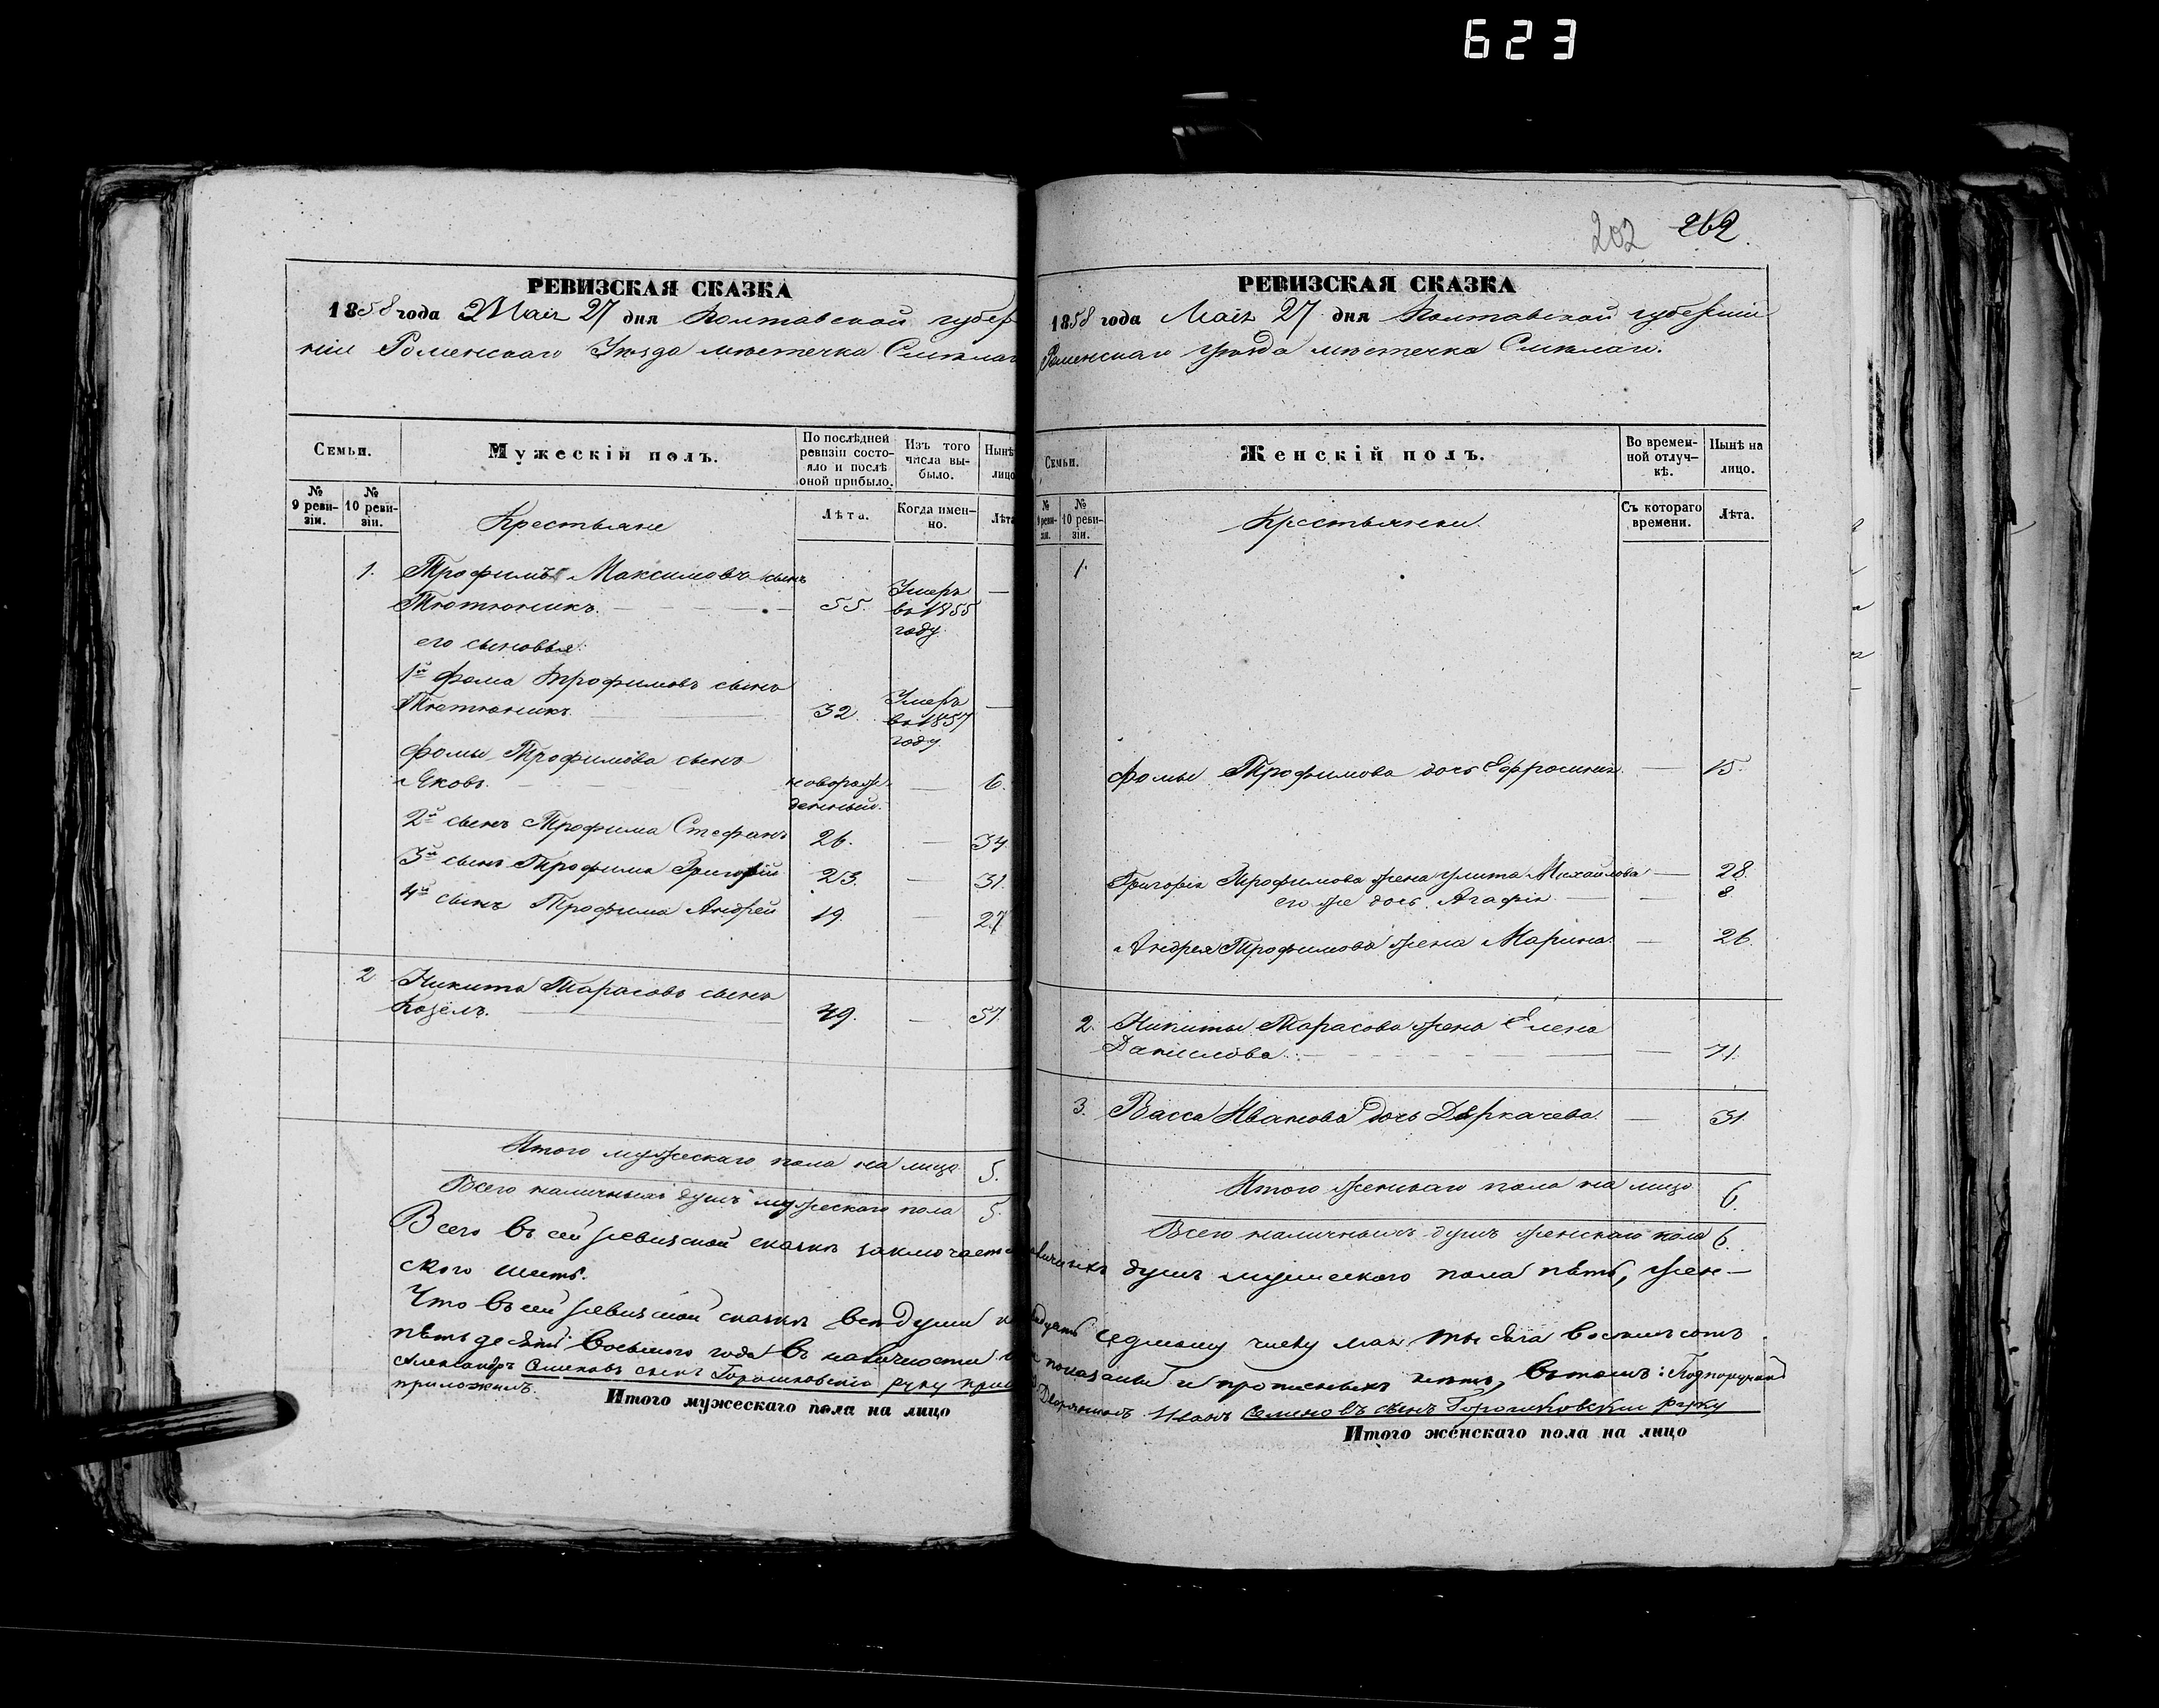 623
202 262
РЕВИЗСКАЯ СКАЗКА
1858 года Маія 27 дня Полтавской губер
ніи Роменскаго Уѣзда мѣстечка Смѣлаго
Семьи.
Мужескій полъ.
По послѣдней ревизіи состояло и послѣ оной прибыло.
Изъ того числа выбыло.
Нынѣ лицо
№ 9 ревизіи.
№ 10 ревизіи.
Крестьяне
Лѣта.
Когда именно.
Лѣта
1. Трофимъ Максимовъ сынъ
Тютюникъ. 55. Умеръ въ 1855 году. —
его сыновья:
1й Фома Трофимовъ сынъ
Тютюникъ. 32. Умеръ въ 1857 году. —
Фомы Трофимова сынъ
Яковъ. новорожденный. — 6.
2й сынъ Трофима Стефанъ 26. — 34.
3й сынъ Трофима Григорій 23. — 31.
4й сынъ Трофима Андрей 19. — 27
2 Никита Тарасовъ сынъ
Козелъ. 49. — 57.
Итого мужескаго пола на лицо 5.
Всего наличныхъ душъ мужескаго пола 5.
РЕВИЗСКАЯ СКАЗКА
1858 года Маія 27 дня Полтавской губерніи
Роменскаго уѣзда мѣстечка Смѣлаго.
Семьи.
Женскій полъ.
Во временной отлучкѣ.
Нынѣ на лицо.
№ 9 ревизіи.
№ 10 ревизіи.
Крестьянки.
Съ котораго времени.
Лѣта.
1.
Фомы Трофимова дочь Ефросинія — 15.
Григорія Трофимова жена Улита Михайлова — 28.
его же дочь Агафія — 8.
Андрея Трофимова жена Марина — 26.
2. Никиты Тарасова жена Елена
Данилова. — 71.
3. Васса Иванова дочь Деркачева. — 31.
Итого женскаго пола на лицо 6.
Всего наличныхъ душъ женскаго пола 6.
Всего въ сей ревизской сказкѣ заключается наличныхъ душъ мужескаго пола пять, жен—
ского шесть.
Что въ сей ревизской сказкѣ всѣ души къ двадцать седьмому числу мая тысяча восемьсотъ
пятьдесятъ восьмого года въ наличности показаны и прописныхъ нетъ, въ томъ: Подпоручикъ
Александръ Семеновъ сынъ Горошковскій руку при Дворянинъ Иванъ Семеновъ сынъ Горошковскій руку
приложилъ.
Итого мужескаго пола на лицо
Итого женскаго пола на лицо